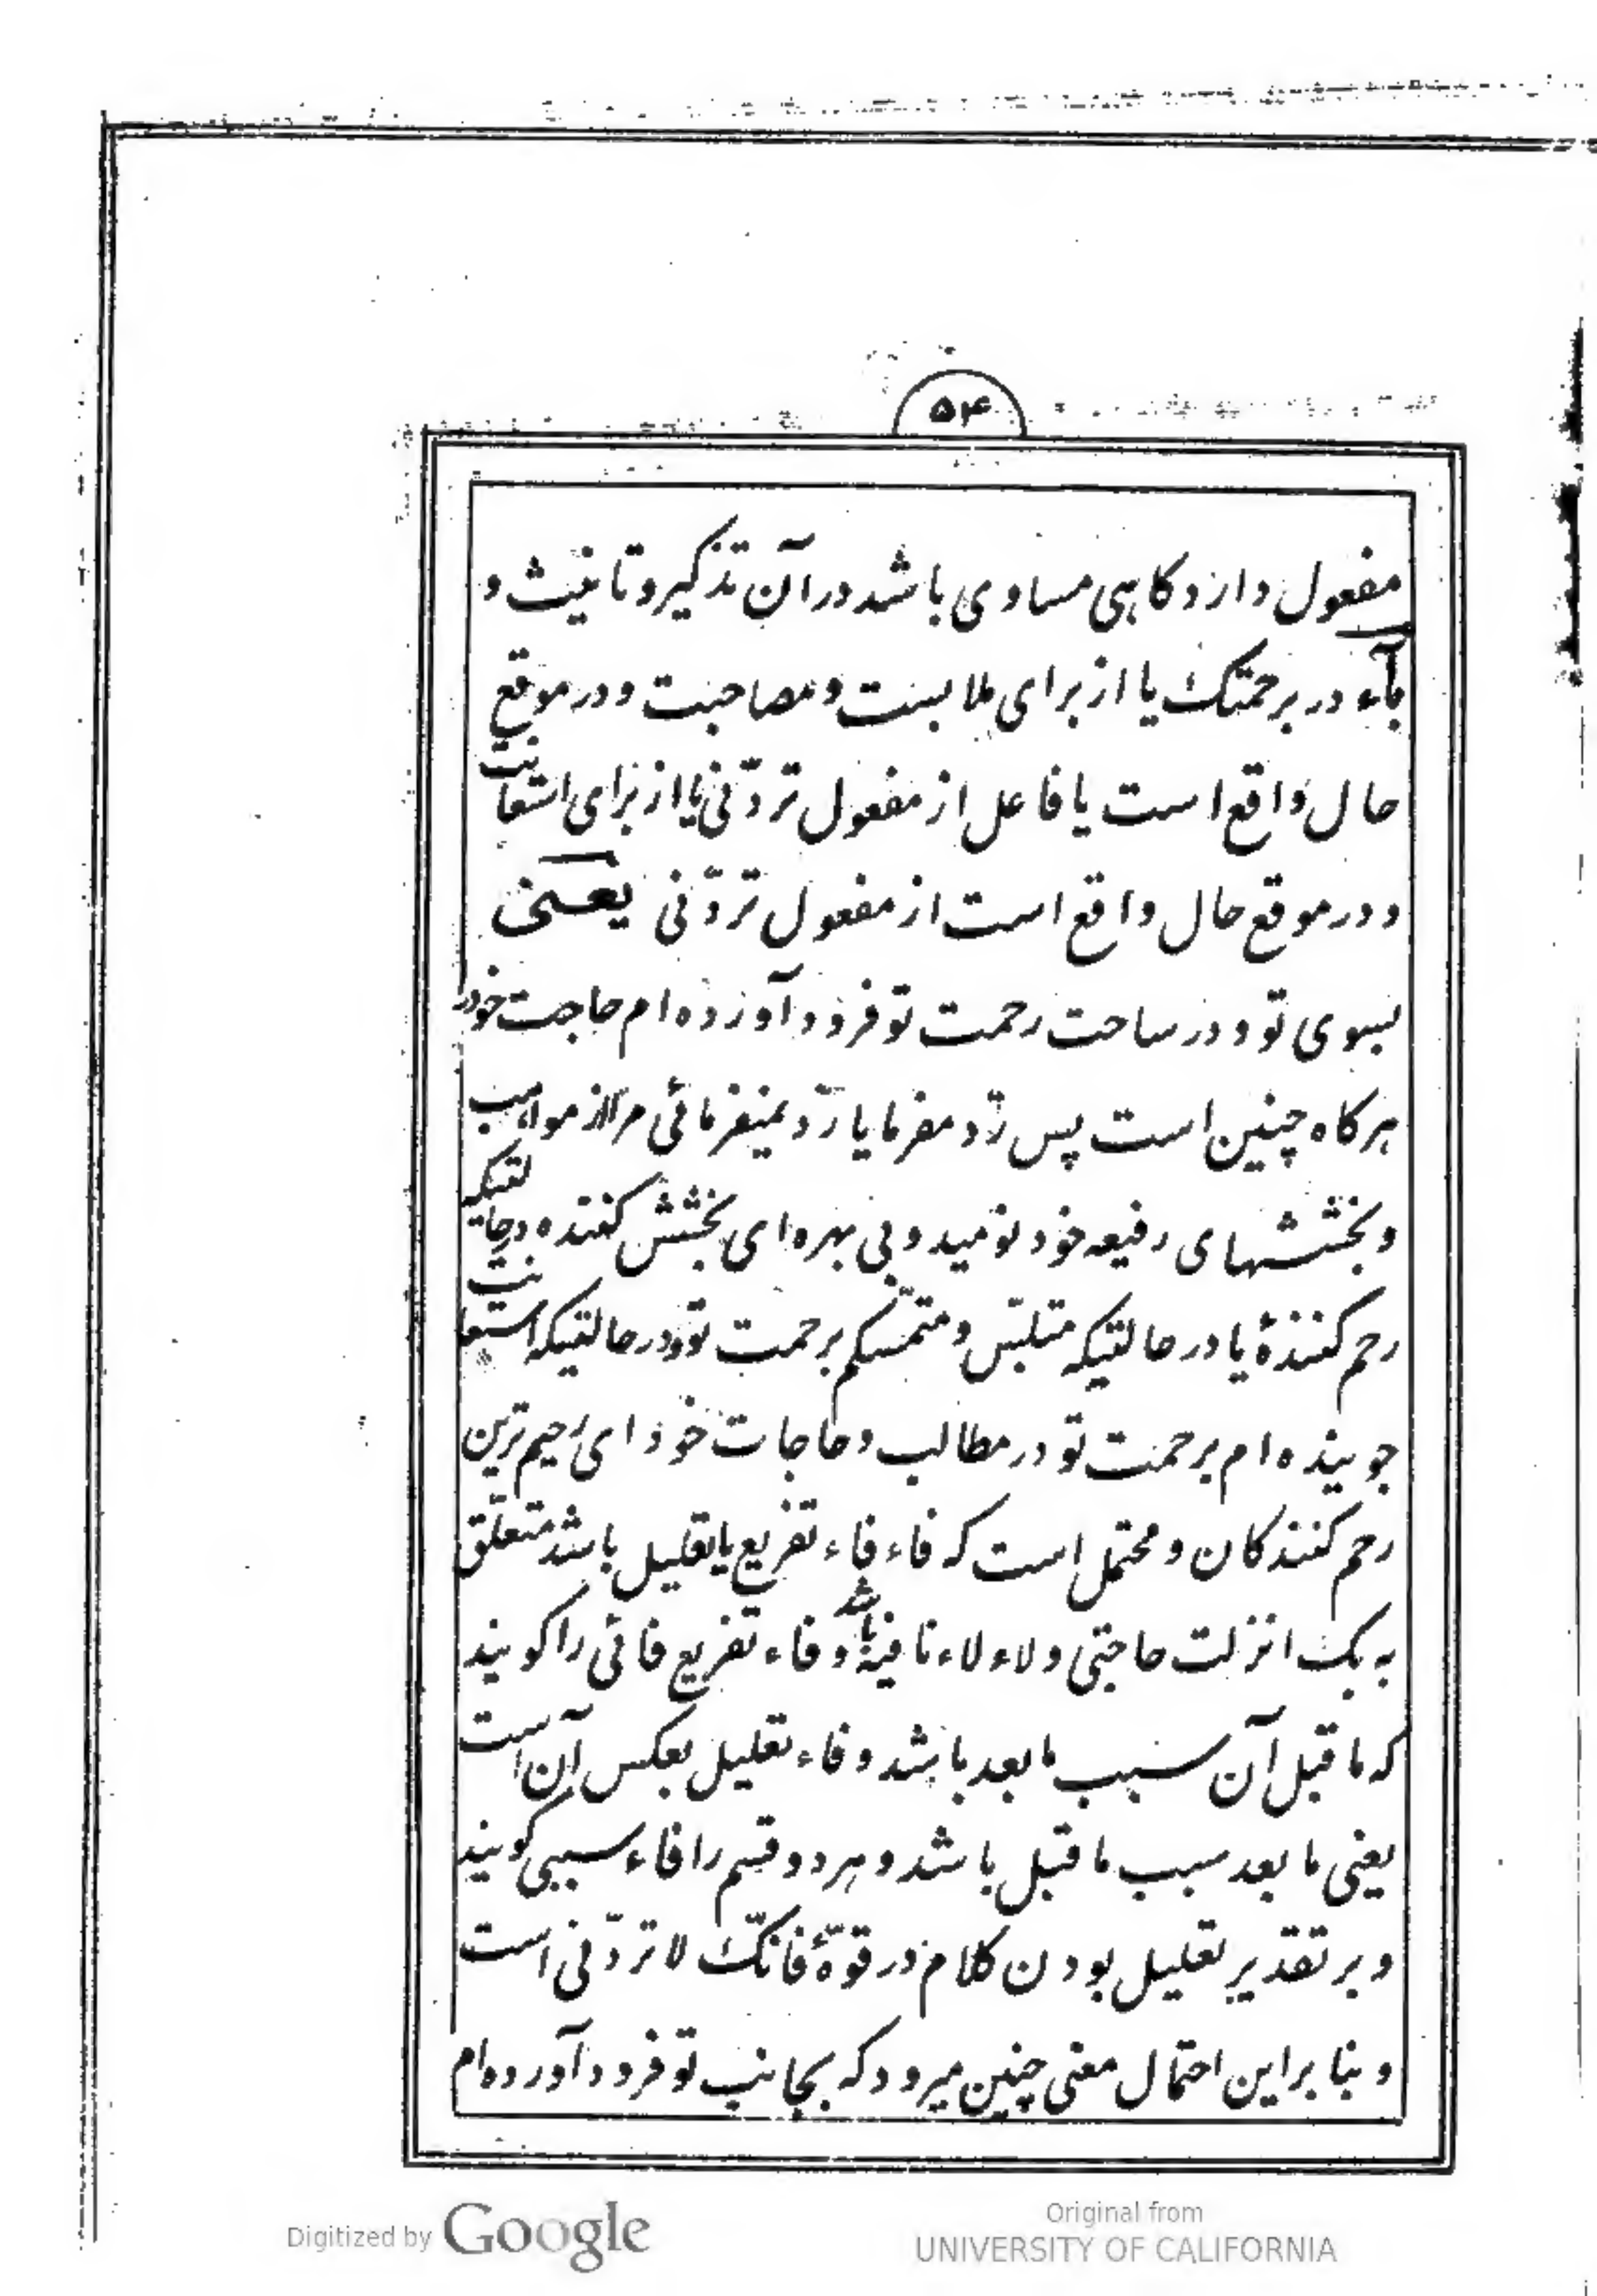 ۵۴
مفعول دارد کاهی مساوی باشد در آن تذکیر و تانیث و
بآء در برحمتک یا از برای ملابست و مصاحبت و در موقع
حال واقع است یا فاعل از مفعول تردّنی یا از برای استعانت
و در موقع حال واقع است از مفعول تردّنی یعنی
بسوی تو و در ساحت رحمت تو فرود آورده ام حاجت خود
هرکاه چنین است پس ردّ مفرما یا ردّ نمیفرمائی مرا از مواهب
و بخششهای رفیعه خود نومید و بی بهره ای بخشش کننده در حالتیکه
رحم کنندهٔ یا در حالتیکه متلبّس و متمسّکم برحمت تو و در حالتیکه استعانت
جوینده ام برحمت تو در مطالب و حاجات خود ای رحیم ترین
رحم کنندکان و محتمل است که فاء فاء تفریع یا تعلیل باشد متعلّق
به بک انزلت حاجتی و لاء لاء نافیه باشد و فاء تفریع فائی را کویند
که ما قبل آن سبب ما بعد باشد و فاء تعلیل بعکس آن است
یعنی ما بعد سبب ما قبل باشد و هر دو قسم را فاء سببی کویند
و بر تقدیر تعلیل بودن کلام در قوّهٔ فانّک لا تردّنی است
و بنا بر این احتمال معنی چنین میرود که بجانب تو فرود آورده ام
Digitized by Google
Original from
UNIVERSITY OF CALIFORNIA